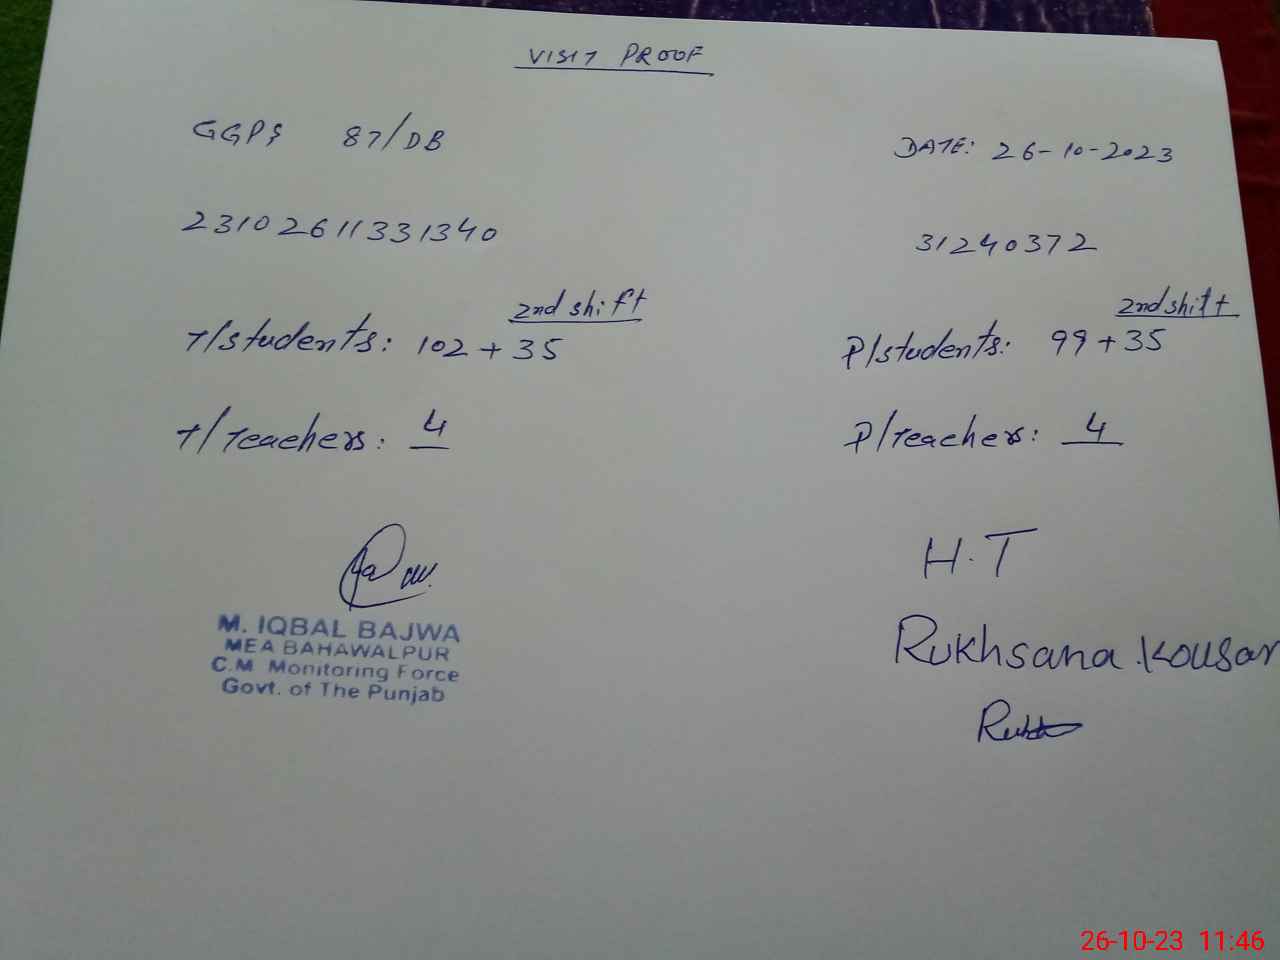 VISIT PROOF
GGPS 87/DB
DATE: 26-10-2023
23102611331340
31240372
2nd shift
2nd shift
T/students: 102 + 35
P/students: 99 + 35
T/Teachers: 4
P/Teachers: 4
H.T
M. IQBAL BAJWA
MEA BAHAWALPUR
C.M Monitoring Force
Govt. of The Punjab
Rukhsana Kousar
26-10-23 11:46